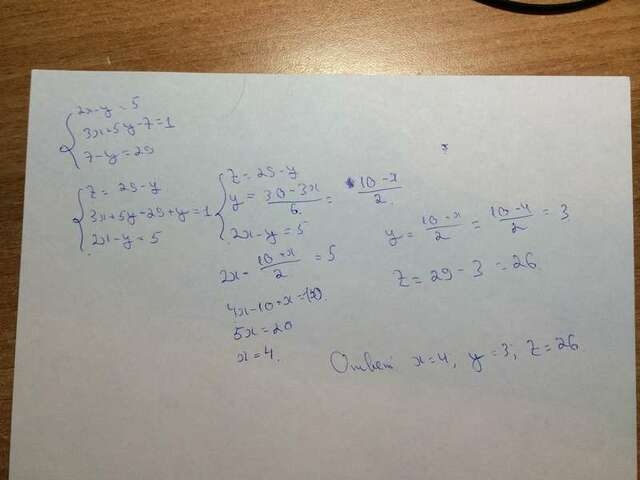 2x-y=5
3x+5y-z=1
z-y=29
z=29-y
3x+5y-29+y=1
2x-y=5
z=29-y
y=\frac{30-3x}{6}=\frac{10-x}{2}
2x-y=5
2x-\frac{10+x}{2}=5
4x-10+x=10
5x=20
x=4.
y=\frac{10-x}{2}=\frac{10-4}{2}=3
z=29-3=26
Ответ x=4, y=3; z=26